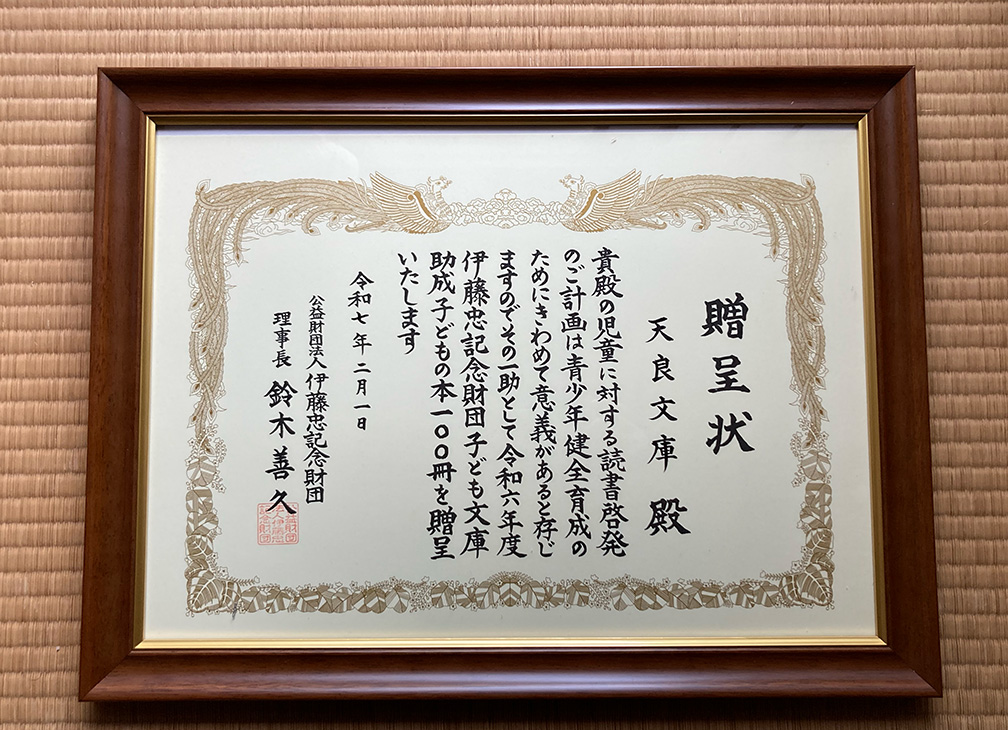 贈呈状
天良文庫 殿
貴殿の児童に対する読書啓発
のご計画は青少年健全育成の
ためにきわめて意義があると存じ
ますのでその一助として令和六年度
伊藤忠記念財団子ども文庫
助成子どもの本一〇〇冊を贈呈
いたします
令和七年二月一日
公益財団法人 伊藤忠記念財団
理事長 鈴木善久